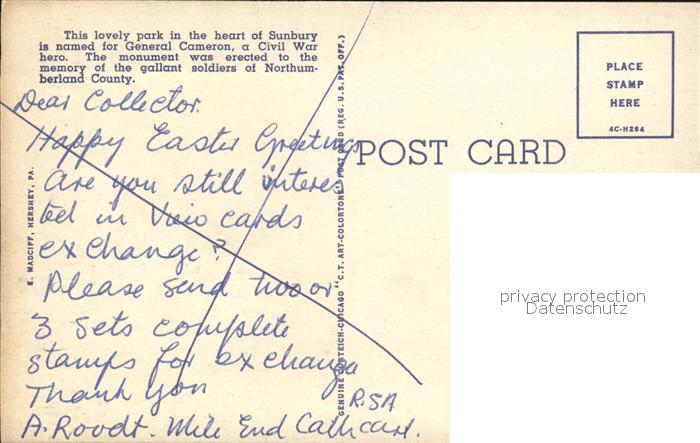 This lovely park in the heart of Sunbury
is named for General Cameron, a Civil War
hero. The monument was erected to the
memory of the gallant soldiers of Northum-
berland County.
Dear Collector.
Happy Easter Greetings
Are you still interes
ted in View cards
exchange?
Please send two or
3 sets complete
stamps for exchange
Thank you
R.SA
A. Roodt. Mile End Cathcart.
E. MADCIFF, HERSHEY, PA.
GENUINE CURTEICH-CHICAGO "C.T. ART-COLORTONE" POST CARD (REG. U.S. PAT. OFF.)
POST CARD
PLACE
STAMP
HERE
4C-H264
privacy protection
Datenschutz